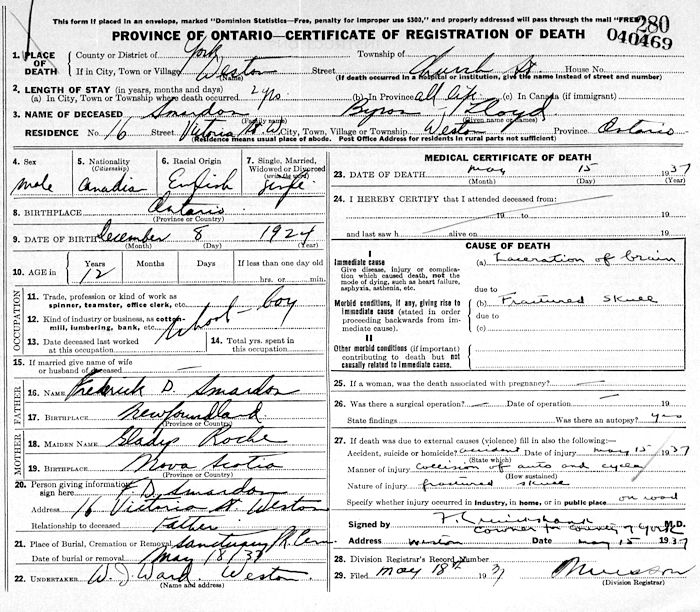 This form if placed in an envelope, marked "Dominion Statistics—Free, penalty for improper use $300," and properly addressed will pass through the mail "FREE"
280
040469
PROVINCE OF ONTARIO—CERTIFICATE OF REGISTRATION OF DEATH
1. PLACE OF DEATH County or District of York Township of
If in City, Town or Village Weston Street Church St House No.
(If death occurred in a hospital or institution, give the name instead of street and number)
2. LENGTH OF STAY (in years, months and days)
(a) In City, Town or Township where death occurred 2 yrs (b) In Province all life (c) In Canada (if immigrant)
3. NAME OF DECEASED Smardon Byron Lloyd
(Family name) (Given name or names)
RESIDENCE No. 16 Street Victoria St. W City, Town, Village or Township Weston Province Ontario
(Residence means usual place of abode. Post Office Address for residents in rural parts not sufficient)
4. Sex male
5. Nationality (Citizenship) Canadian
6. Racial Origin English
7. Single, Married, Widowed or Divorced (write the word) Single
8. BIRTHPLACE Ontario
(Province or Country)
9. DATE OF BIRTH December 8 1924
(Month) (Day) (Year)
10. AGE in Years Months Days If less than one day
12 hrs. or min.
OCCUPATION
11. Trade, profession or kind of work as spinner, teamster, office clerk, etc.
12. Kind of industry or business, as cotton-mill, lumbering, bank, etc.
School-boy
13. Date deceased last worked at this occupation
14. Total yrs. spent in this occupation
15. If married give name of wife or husband of deceased
FATHER
16. NAME Frederick D. Smardon
17. BIRTHPLACE Newfoundland
(Province or Country)
MOTHER
18. MAIDEN NAME Gladys Roche
19. BIRTHPLACE Nova Scotia
(Province or Country)
20. Person giving information sign here F. D. Smardon
Address 16 Victoria St. Weston
Relationship to deceased Father
21. Place of Burial, Cremation or Removal Sanctuary Pk Cem
Date of burial or removal May 18/37
22. UNDERTAKER W. J. Ward Weston
(Name and address)
MEDICAL CERTIFICATE OF DEATH
23. DATE OF DEATH May 15 1937
(Month) (Day) (Year)
24. I HEREBY CERTIFY that I attended deceased from:
19 to 19
and last saw h alive on 19
CAUSE OF DEATH
I
Immediate cause (a) Laceration of brain
Give disease, injury or complication which caused death, not the mode of dying, such as heart failure, asphyxia, asthenia, etc.
due to
Morbid conditions, if any, giving rise to immediate cause (stated in order proceeding backwards from immediate cause).
(b) Fractured skull
due to
(c)
II
Other morbid conditions (if important) contributing to death but not causally related to immediate cause.
25. If a woman, was the death associated with pregnancy?
26. Was there a surgical operation? Date of operation 19
State findings Was there an autopsy? yes
27. If death was due to external causes (violence) fill in also the following:—
Accident, suicide or homicide? accident Date of injury May 15 1937
(State which)
Manner of injury collision of auto and cycle
(How sustained)
Nature of injury fractured skull
Specify whether injury occurred in industry, in home, or in public place on road
Signed by M.D.
Coroner for County of York
Address Weston May 15 1937
28. Division Registrar's Record Number
29. Filed May 18th 1937
(Division Registrar)